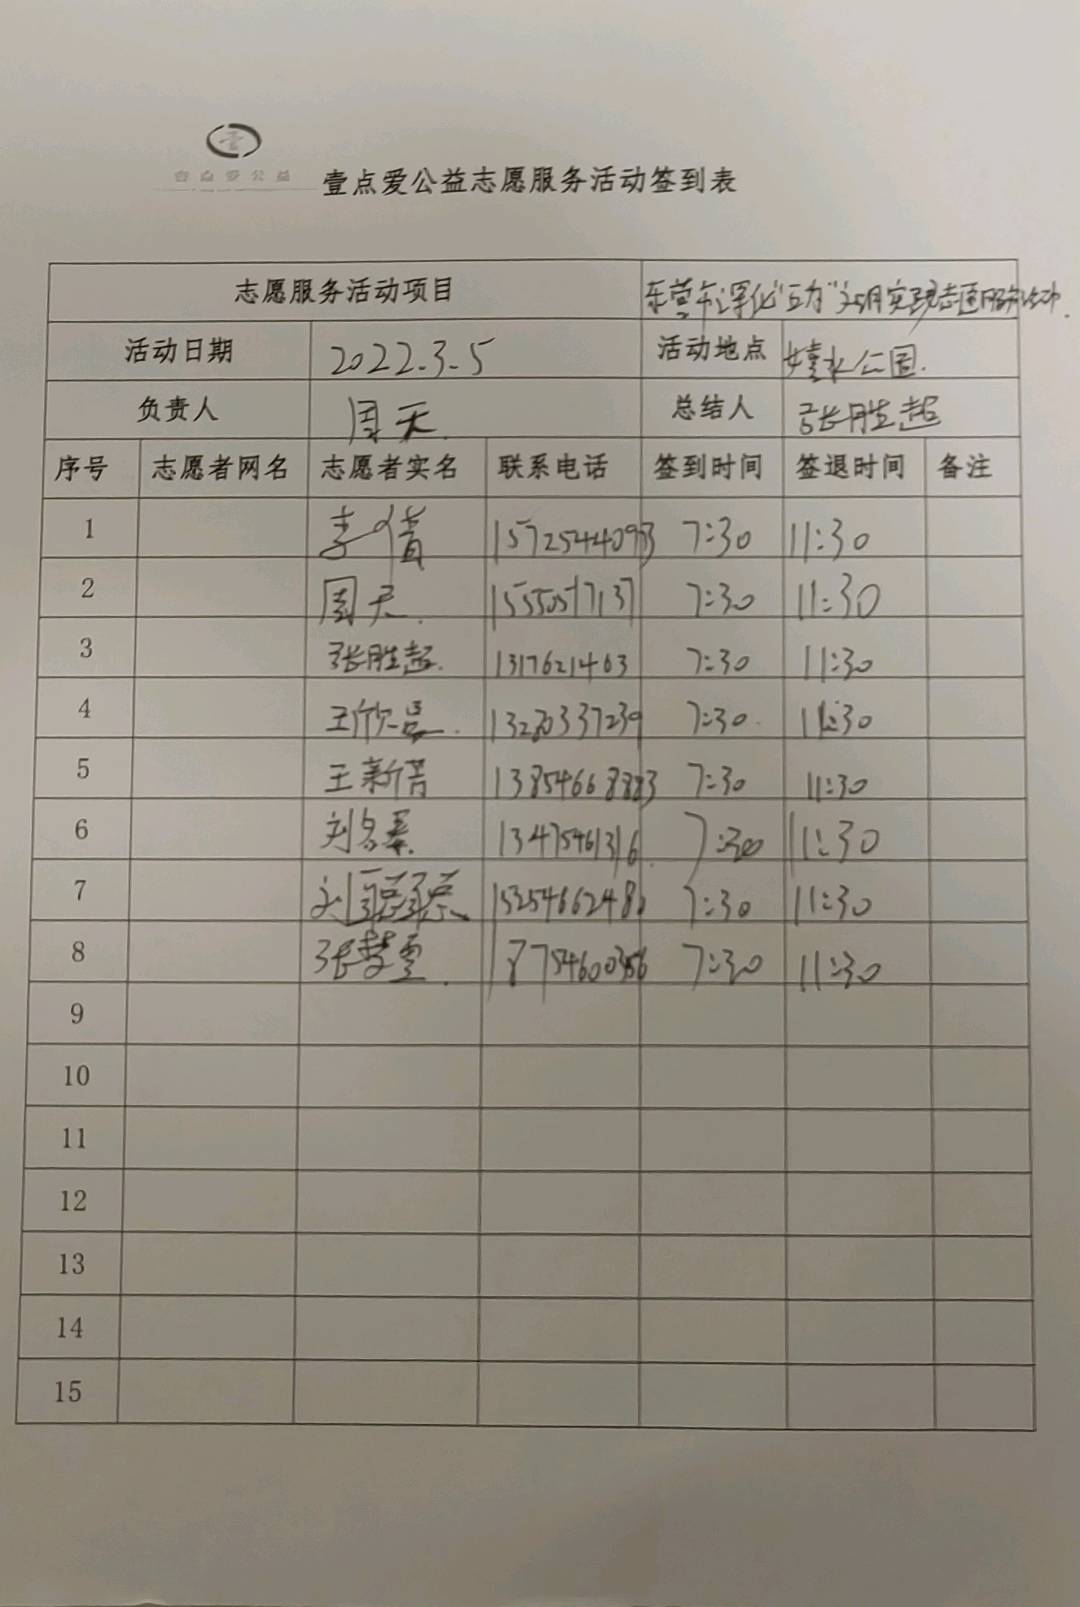 壹点爱公益
壹点爱公益志愿服务活动签到表
志愿服务活动项目 东营市深化"五为"文明实践志愿服务活动.
活动日期 2022.3.5 活动地点 公园.
负责人 周天. 总结人 张胜超
序号 志愿者网名 志愿者实名 联系电话 签到时间 签退时间 备注
1 李倩 15725444093 7:30 11:30
2 周天. 7:30 11:30
3 张胜超. 1317621463 7:30 11:30
4 王欣 7:30. 11:30
5 王新 13854668883 7:30 11:30
6 刘 13475461316. 7:30 11:30
7 刘聪聪 7:30 11:30
8 张梦雪. 18754600356 7:30 11:30
9
10
11
12
13
14
15